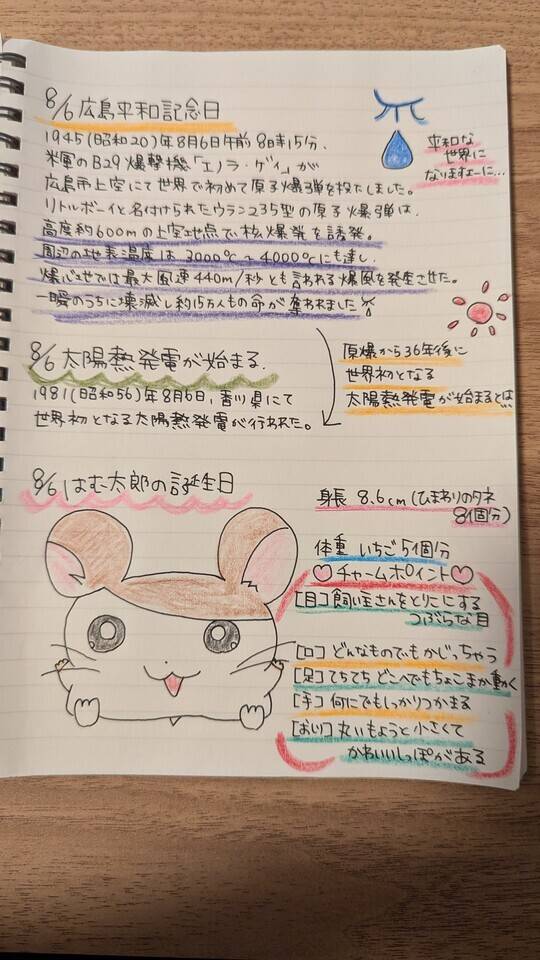 8/6 広島平和記念日
1945(昭和20)年8月6日午前8時15分、
米軍のB29爆撃機「エノラ・ゲイ」が
広島市上空にて世界で初めて原子爆弾を投下しました。
リトルボーイと名付けられたウラン235型の原子爆弾は、
高度約600mの上空地点で核爆発を誘発。
周辺の地表温度は3000℃~4000℃にも達し、
爆心地では最大風速440m/秒とも言われる爆風を発生させた。
一瞬のうちに壊滅し約15万人もの命が奪われました
平和な
世界に
なりますよーに…
8/6 太陽熱発電が始まる.
1981(昭和56)年8月6日,香川県にて
世界初となる太陽熱発電が行われた。
原爆から36年後に
世界初となる
太陽熱発電が始まるとは
8/6 はむ太郎の誕生日
身長 8.6cm(ひまわりのタネ
8個分)
体重 いちご5個分
♡チャームポイント♡
[目]飼い主さんをとりこにする
つぶらな目
[口]どんなものでもかじっちゃう
[足]てちてちどこへでもちょこまか動く
[手]何にでもしっかりつかまる
[おしり]丸いもようと小さくて
かわいいしっぽがある